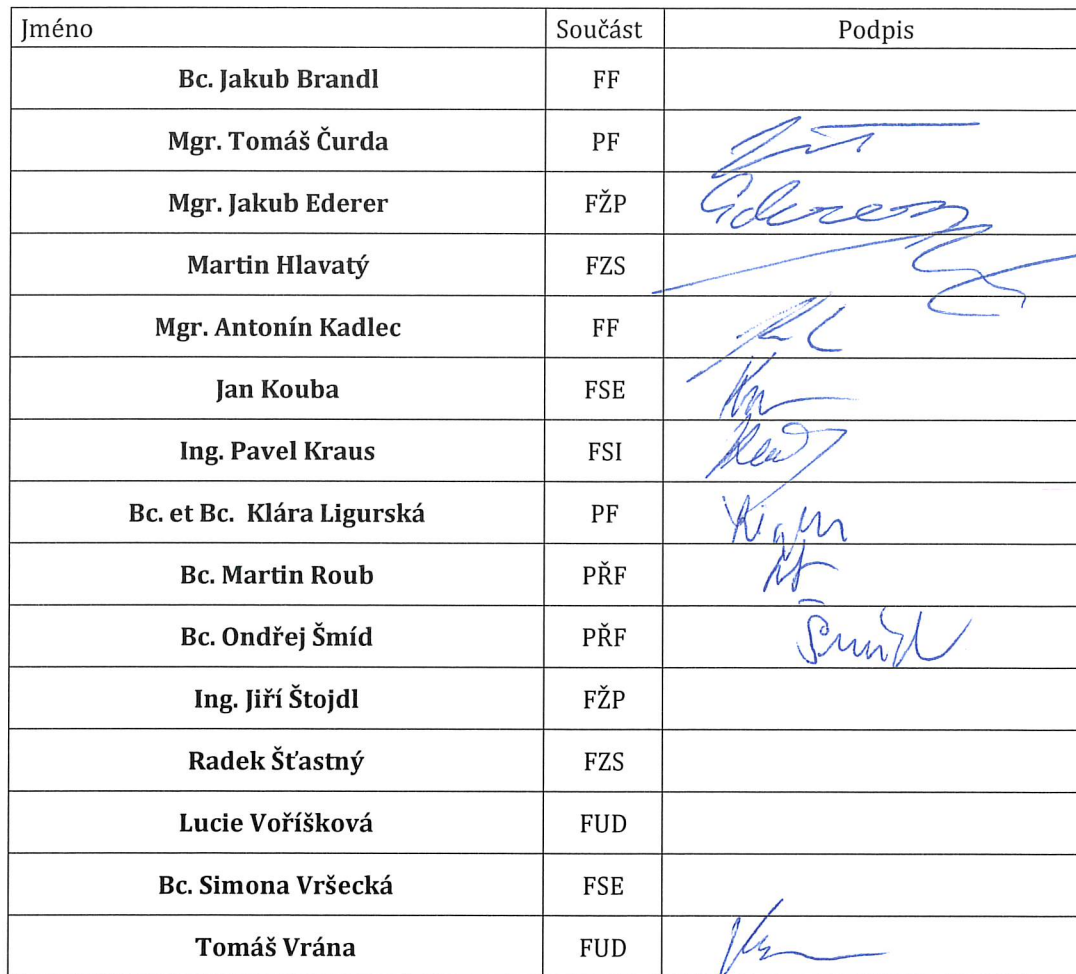 Jméno Součást Podpis
Bc. Jakub Brandl FF
Mgr. Tomáš Čurda PF
Mgr. Jakub Ederer FŽP Ederer
Martin Hlavatý FZS
Mgr. Antonín Kadlec FF
Jan Kouba FSE
Ing. Pavel Kraus FSI
Bc. et Bc. Klára Ligurská PF
Bc. Martin Roub PŘF
Bc. Ondřej Šmíd PŘF Šmíd
Ing. Jiří Štojdl FŽP
Radek Šťastný FZS
Lucie Voříšková FUD
Bc. Simona Vršecká FSE
Tomáš Vrána FUD